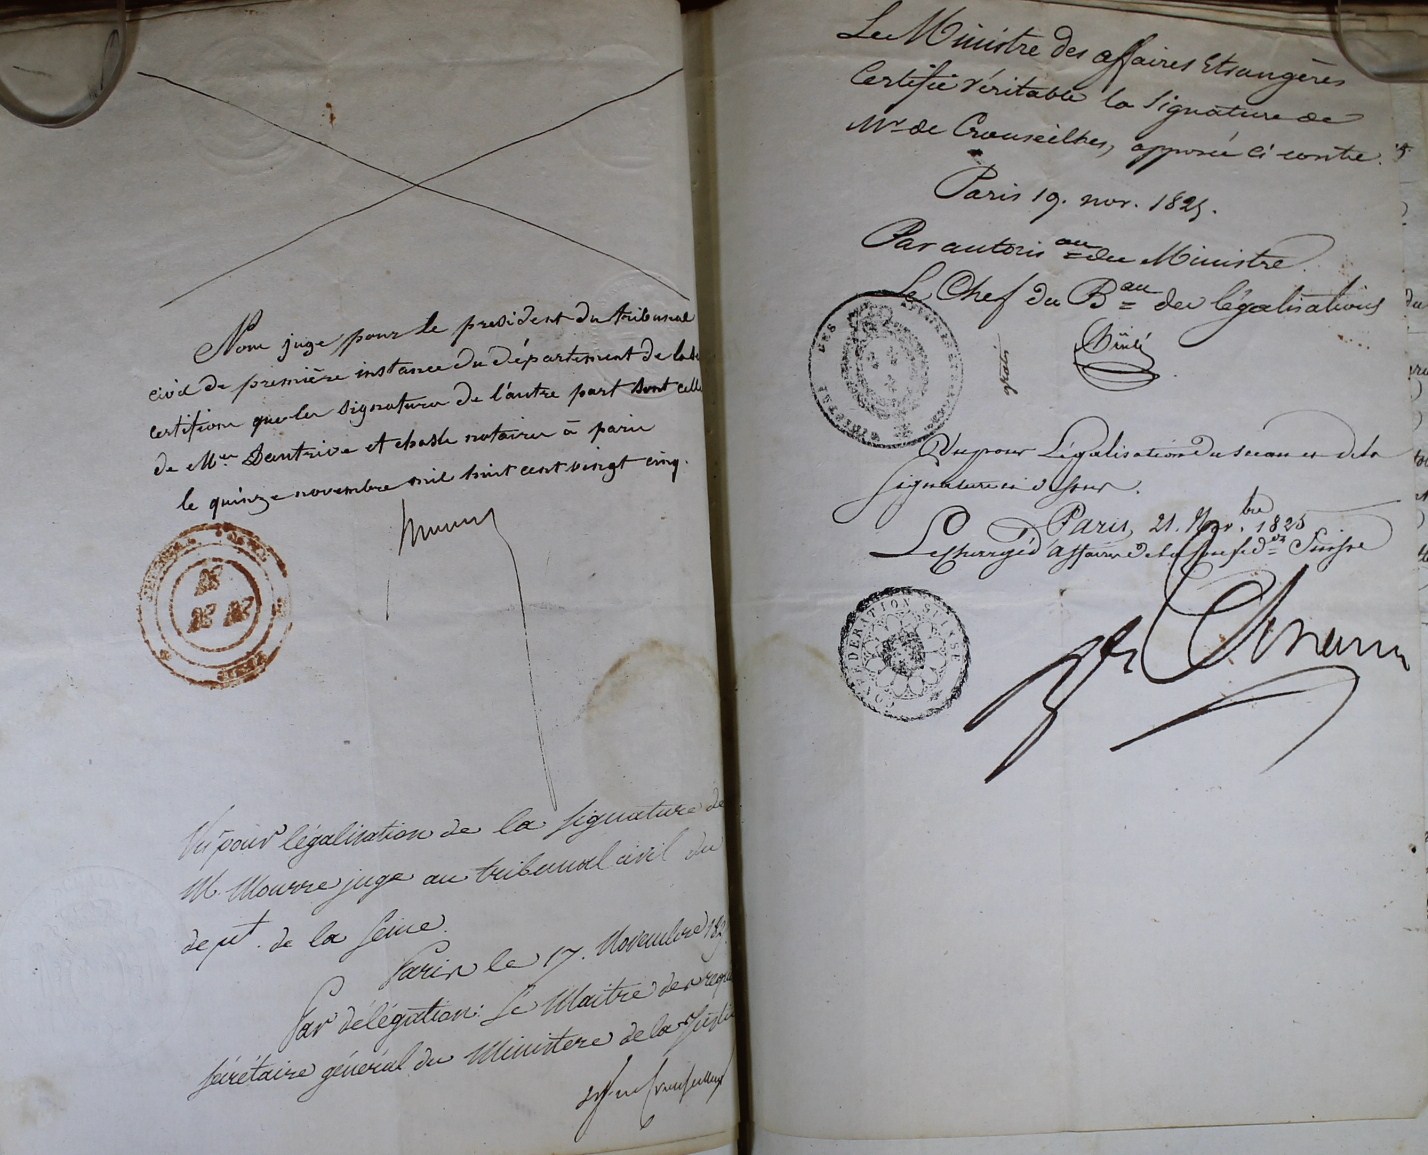 Nous juge, pour le president du tribunal
civil de première instance du département de la Se
certifions que les signatures de l'autre part sont celles
de Mes Dautrive et Chodr notaires à paris
le quinze novembre mil huit cent vingt cinq.
Vu pour légalisation de la signature de
M. Mourre juge au tribunal civil du
dept. de la Seine.
Paris le 17. Novembre 182
Par délégation: Le Maitre des requ
Sécrétaire général du Ministere de la Justi
Le Ministre des affaires Etrangères
Certifie véritable la signature de
Mr de Crouseilhes, apposée ci contre.
Paris 19. nov. 1825.
Par autorisaon du Ministre.
Le Chef du Bau des légalisations
gratis
MINISTRE DES AFFAIRES ETRANGERES
Vu pour Légalisation du sceau et de la
signature ci dessus.
Paris, 21. Novbre 1825
Le chargé d'affaires de la Confédon Suisse
CONFEDERATION SUISSE